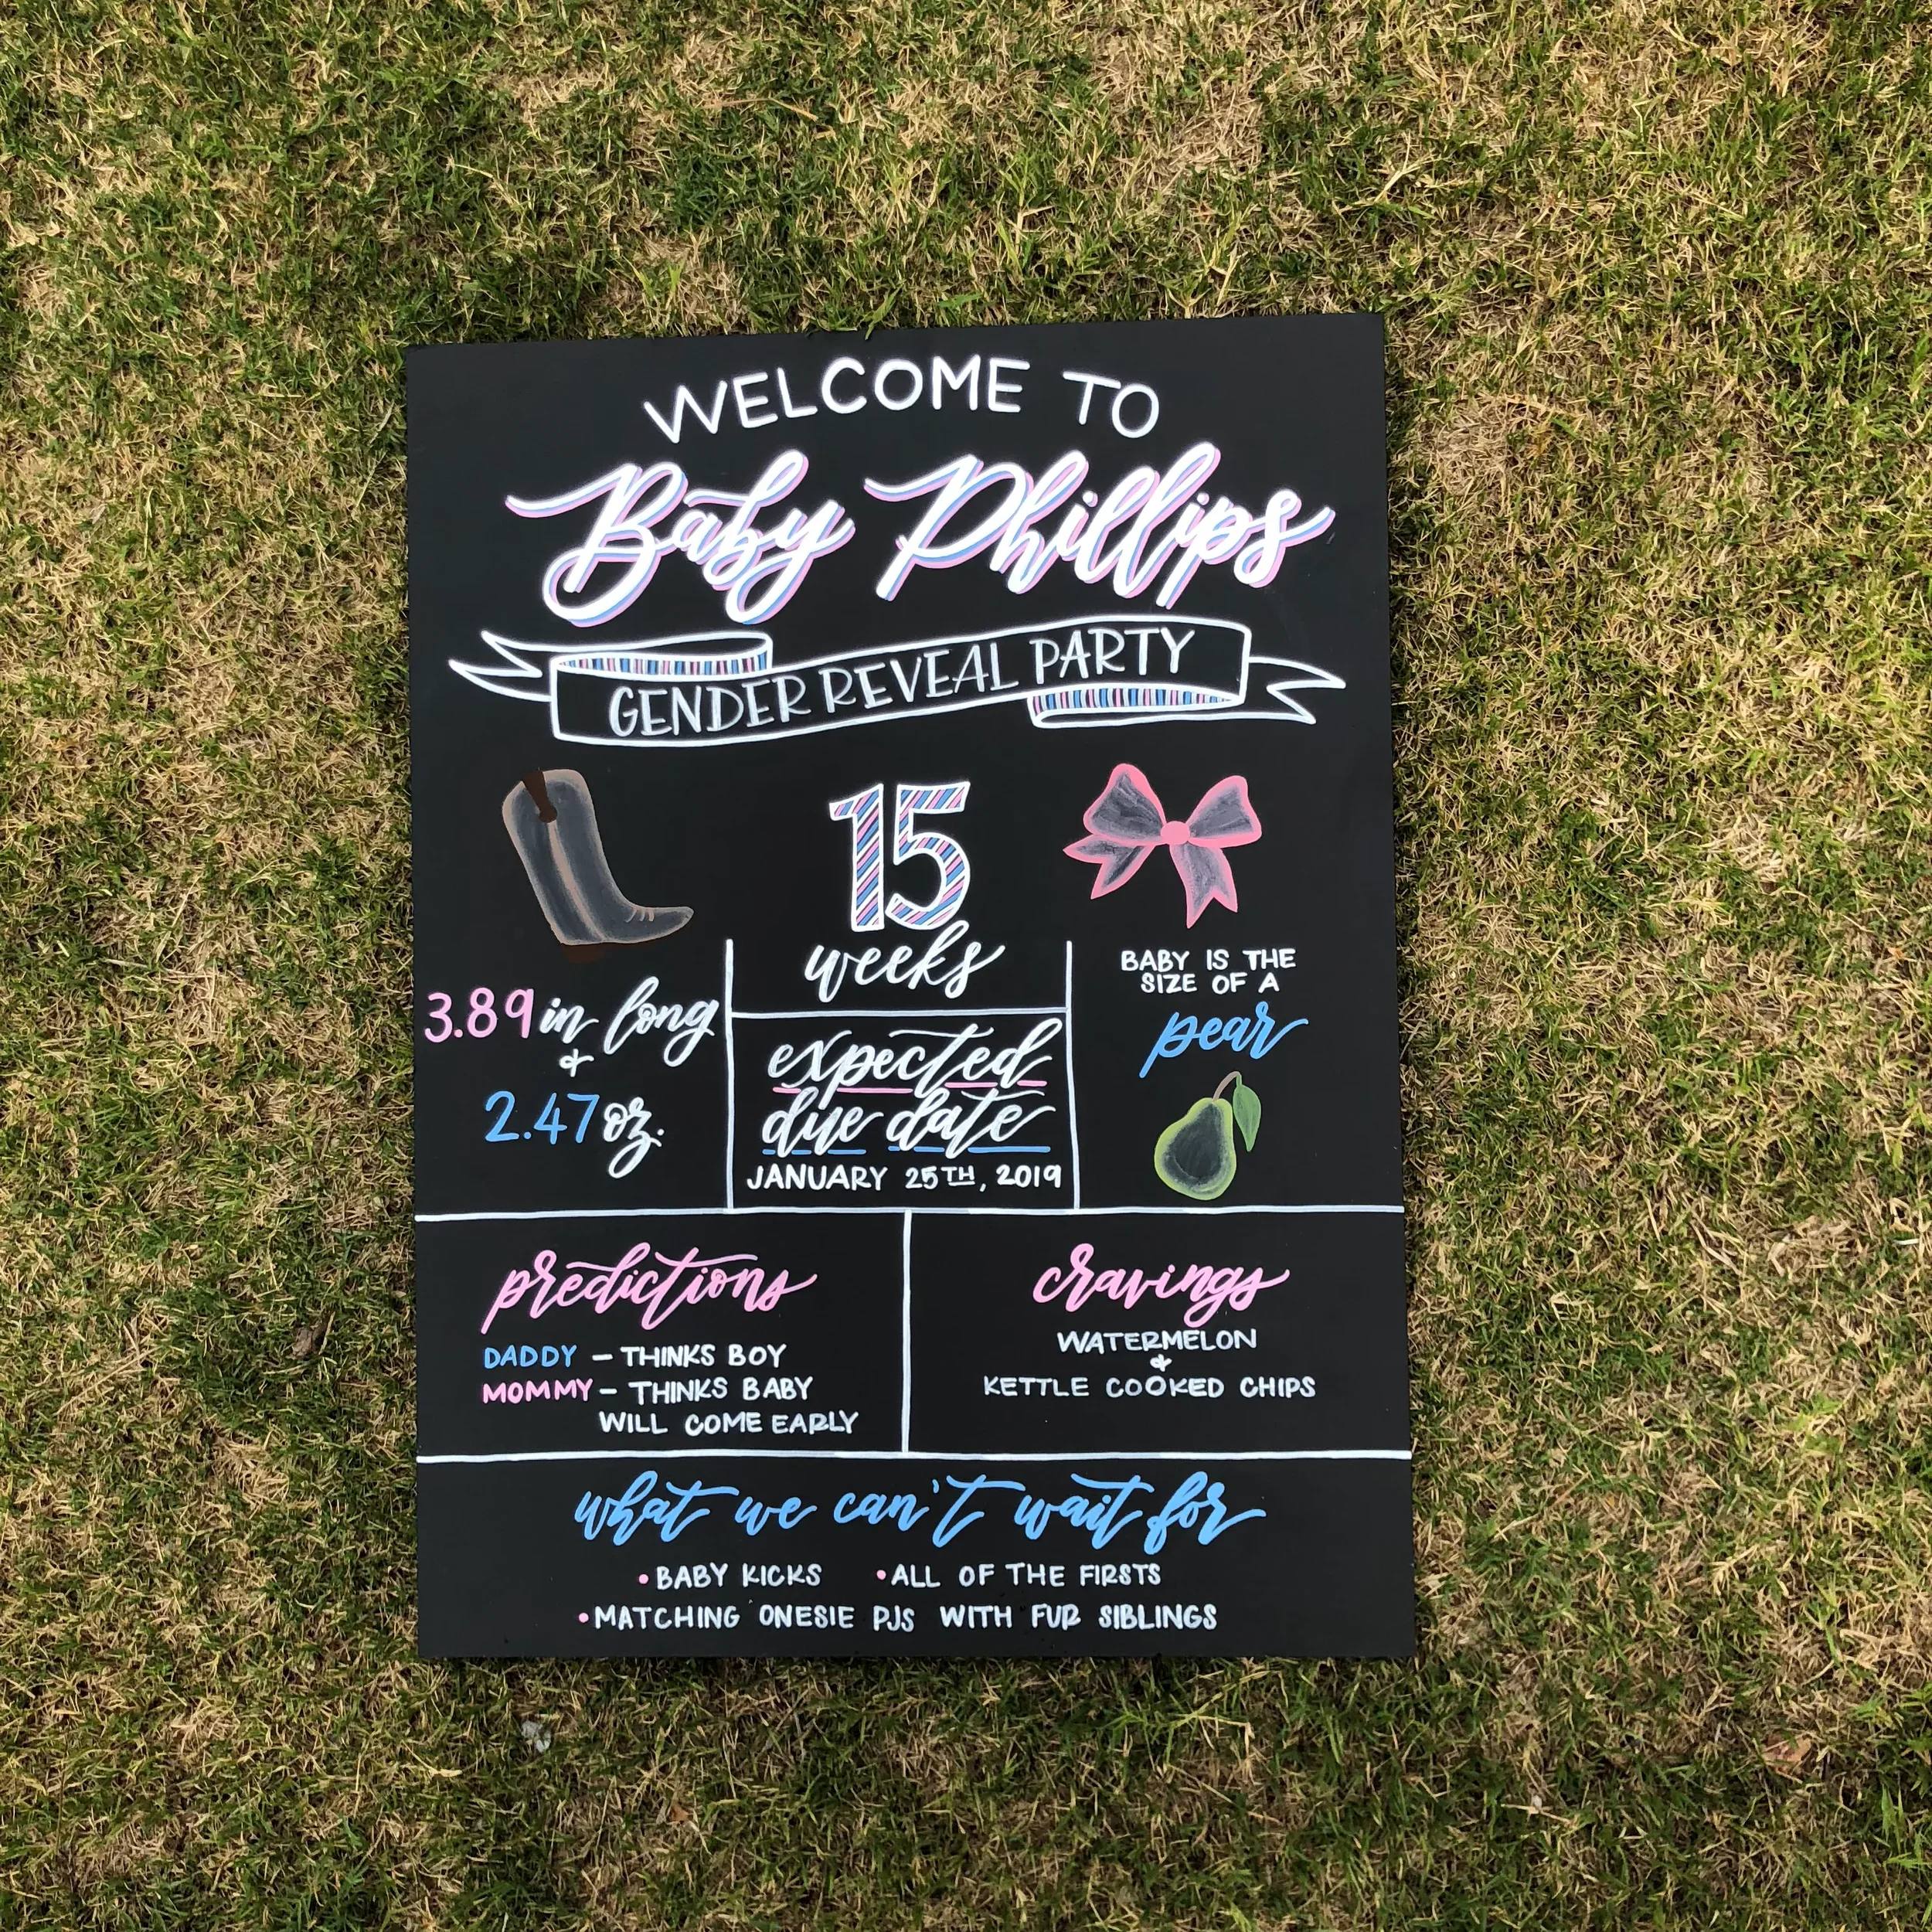 WELCOME TO
Baby Phillips
GENDER REVEAL PARTY
15
weeks
3.89 in long
&
2.47 oz.
expected
due date
JANUARY 25TH, 2019
BABY IS THE
SIZE OF A
pear
predictions
DADDY – THINKS BOY
MOMMY – THINKS BABY
WILL COME EARLY
cravings
WATERMELON
&
KETTLE COOKED CHIPS
what we can't wait for
• BABY KICKS • ALL OF THE FIRSTS
• MATCHING ONESIE PJS WITH FUR SIBLINGS